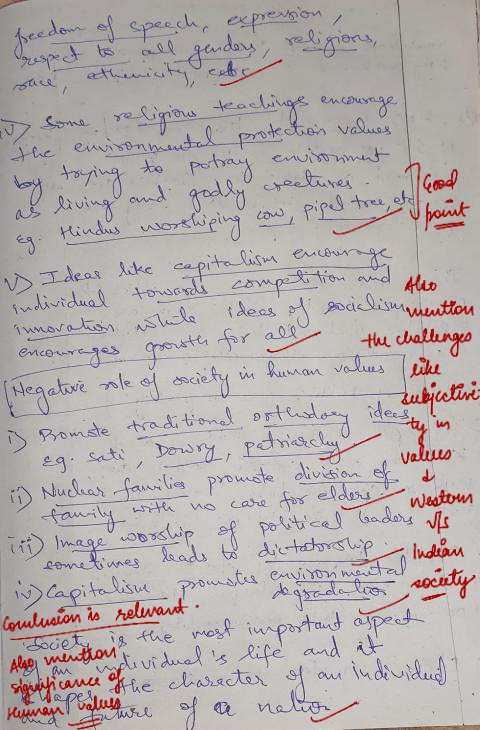 freedom of speech, expression,
respect to all genders, religions,
race, ethenicity, etc
iv) Some religious teachings encourage
the environmental protection values
by trying to potray environment
as living and godly creatures.
eg. Hindus worshiping cow, pipel tree, etc
Good
point
v) Ideas like capitalism encourage
individual towards competition and
innovation while ideas of socialism
encourages growth for all
Also
mention
the challenges
like
subjectivi-
ty in
values
↓
Western
v/s
Indian
society
Negative role of society in human values
i) Promote traditional orthodoxy ideas
eg. sati, Dowry, patriarchy
ii) Nuclear families promote division of
family with no care for elders.
iii) Image worship of political leaders
sometimes leads to dictatorship.
iv) Capitalism promotes environmental
degradation
Conclusion is relevant.
Society is the most important aspect
an individual's life and it
shapes the character of an individual
and future of a nation
Also mention
significance of
Human values